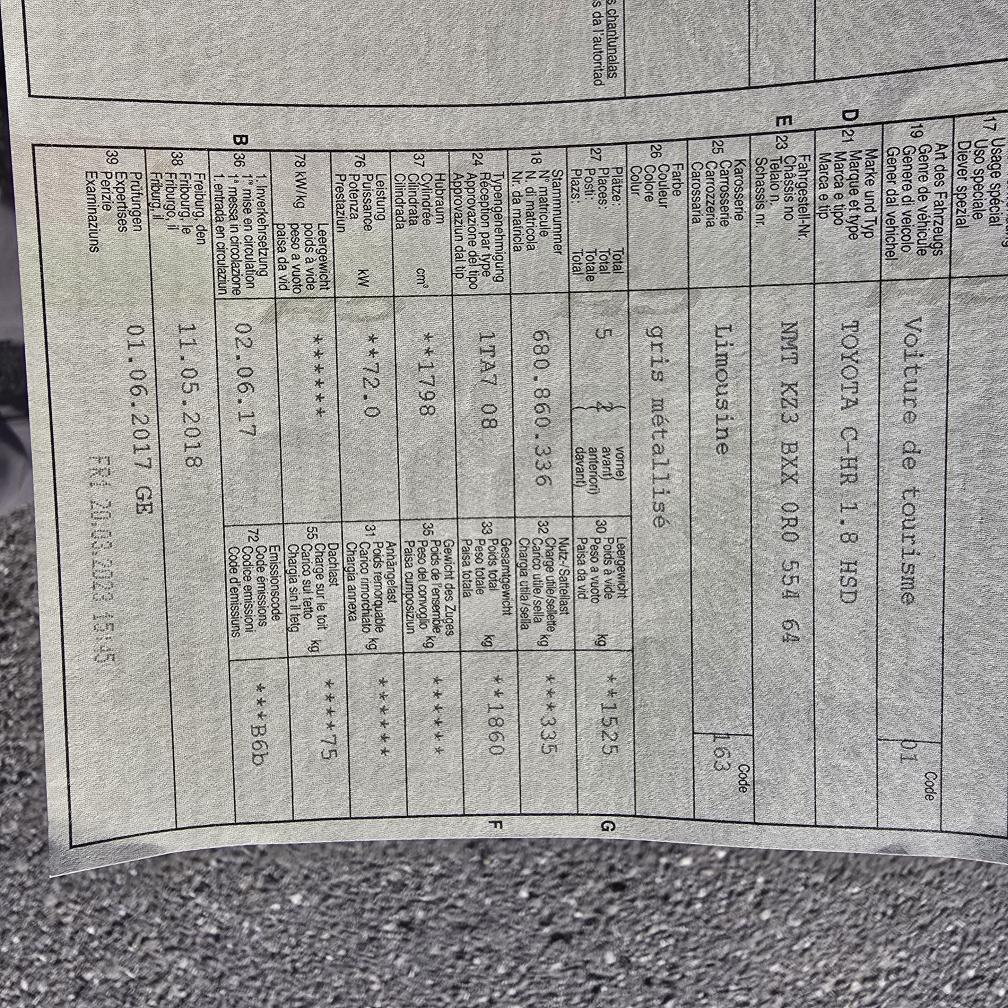 s chantunalas
s da l'autoritad
17 Usage spécial
Uso speciale
Diever spezial
Art des Fahrzeugs
19 Genre de véhicule
Genere di veicolo
Gener dal vehichel
Voiture de tourisme
Code
01
Marke und Typ
D 21 Marque et type
Marca e tipo
Marca e tip
TOYOTA C-HR 1.8 HSD
Fahrgestell-Nr.
E 23 Châssis no
Telaio n.
Schassis nr.
NMT KZ3 BXX 0R0 554 64
Karosserie
25 Carrosserie
Carrozzeria
Carossaria
Limousine
Code
163
Farbe
26 Couleur
Colore
Colur
gris métallisé
Plätze: Total
27 Places: Total
Posti: Totale
Plazs: Total
5 2
vorne)
avant)
anteriori)
davant)
Leergewicht
30 Poids à vide
Peso a vuoto kg
Paisa da vid
**1525
G
Stammnummer
18 N° matricule
N. di matricola
Nr. da matricla
680.860.336
Nutz-/Sattellast
32 Charge utile/sellette
Carico utile/sella kg
Chargia utila/sella
***335
Typengenehmigung
24 Réception par type
Approvazione del tipo
Approvaziun dal tip
1TA7 08
Gesamtgewicht
33 Poids total
Peso totale kg
Paisa totala
**1860
F
Hubraum
37 Cylindrée
Cilindrata cm³
Cilindrada
**1798
Gewicht des Zuges
35 Poids de l'ensemble
Peso del convoglio kg
Paisa cumposiziun
******
Leistung
76 Puissance
Potenza kW
Prestaziun
**72.0
Anhängelast
31 Poids remorquable
Carico rimorchiato kg
Chargia annexa
******
Leergewicht
78 kW/kg poids à vide
peso a vuoto
paisa da vid
******
Dachlast
55 Charge sur le toit
Carico sul tetto kg
Chargia sin il tetg
****75
1. Inverkehrsetzung
B 36 1re mise en circulation
1a messa in circolazione
1. entrada en circulaziun
02.06.17
Emissionscode
72 Code émissions
Codice emissioni
Code d'emissiuns
***B6b
Freiburg, den
38 Fribourg, le
Friburgo, il
Friburg, il
11.05.2018
Prüfungen
39 Expertises
Perizie
Examinaziuns
01.06.2017 GE
FRI 20.03.2023 15:45